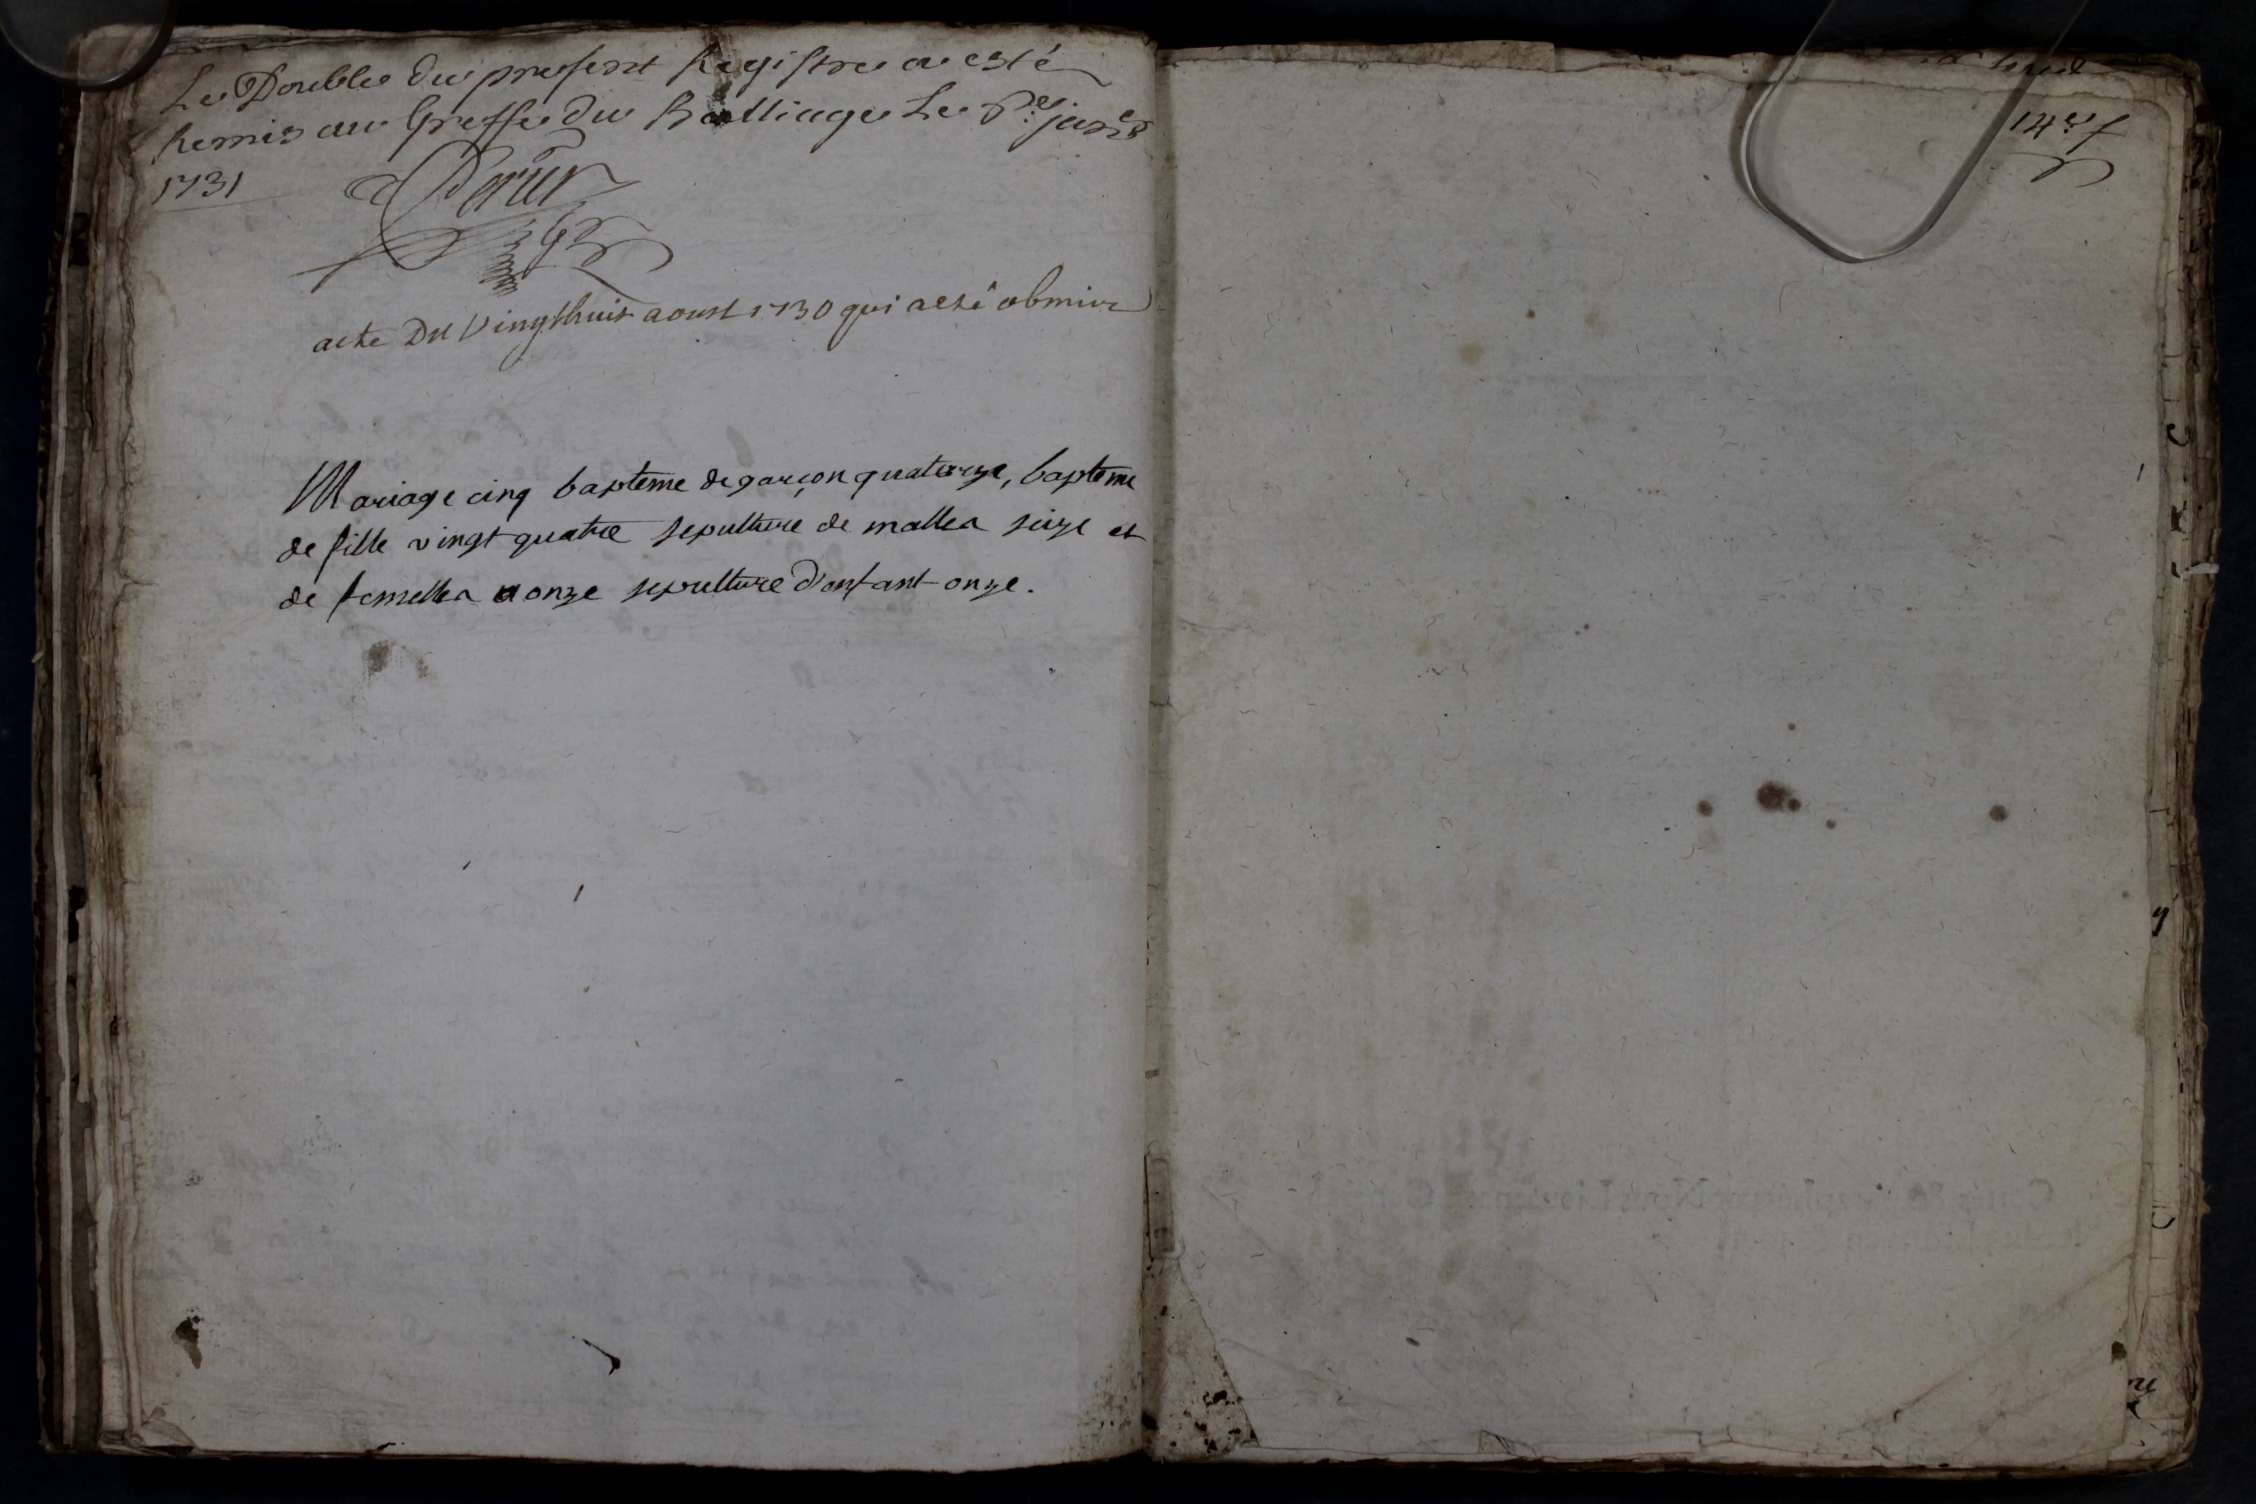 Le Double du present Registre a esté
Remis au Greffe du Bailliage Le Pe. janer
1731
acte Du Vingthuit aoust 1730 qui a esté obmis
Mariage cinq bapteme de garçon quatorze, bapteme
de fille vingt quatre sepulture de malles seize et
de femelles onze sepulture d'enfant onze.
14e f